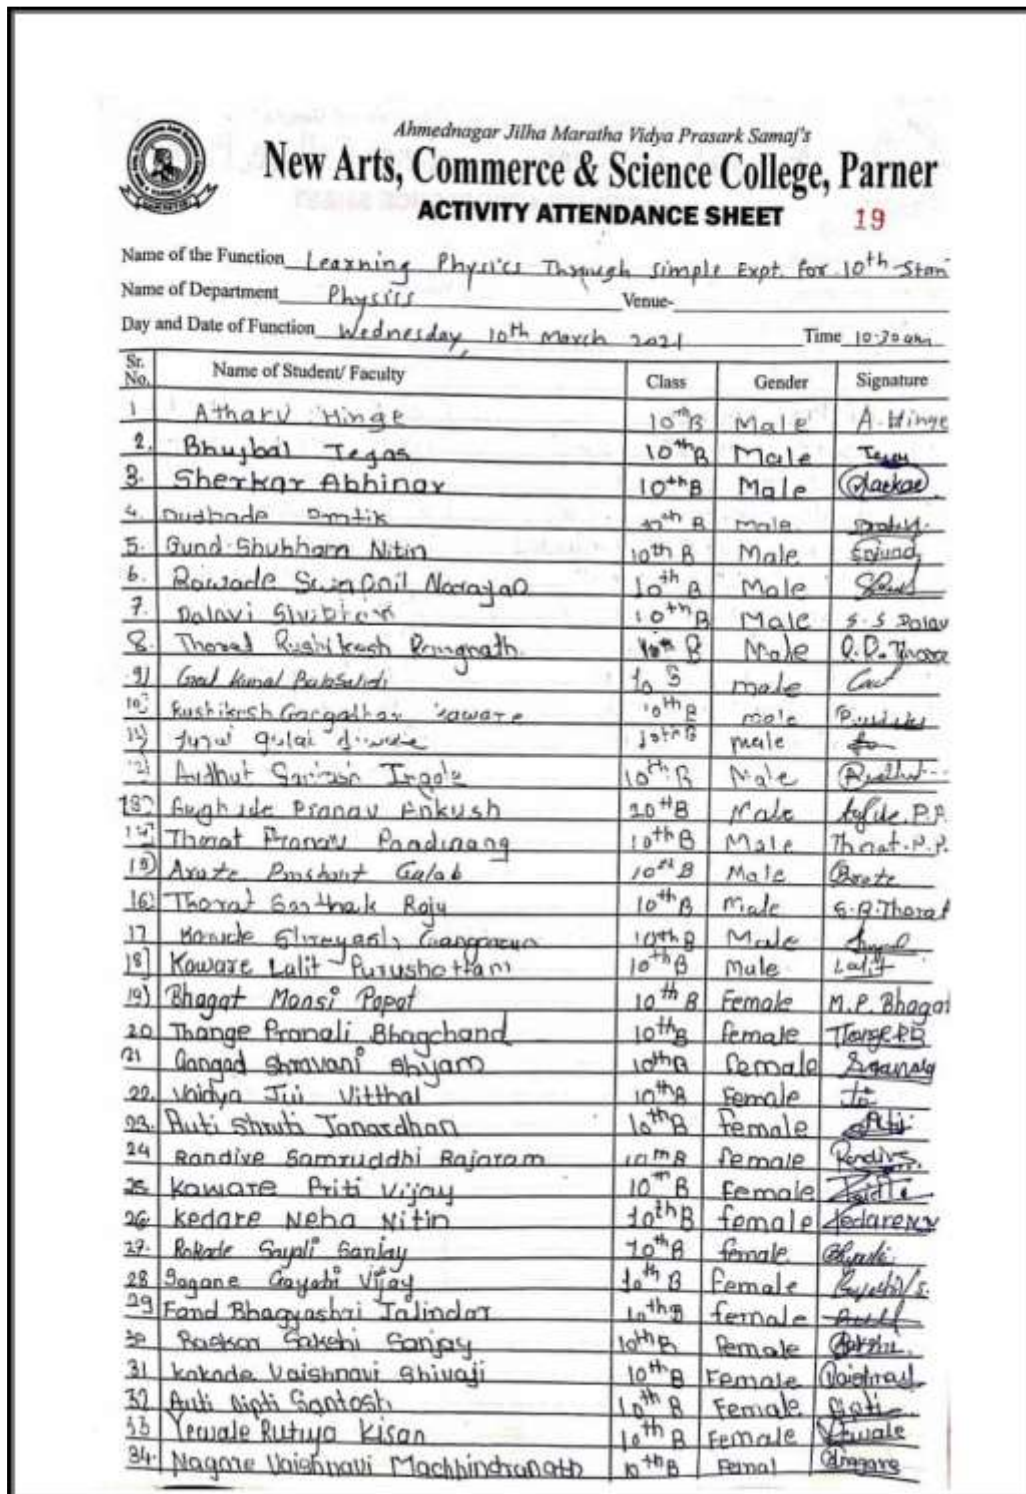 Ahmednagar Jilha Maratha Vidya Prasark Samaj's
New Arts, Commerce & Science College, Parner
ACTIVITY ATTENDANCE SHEET 19
Name of the Function Learning Physics Through simple Expt. for 10th Stan
Name of Department Physics Venue-
Day and Date of Function Wednesday, 10th March 2021 Time 10-30 am
Sr. No. Name of Student/ Faculty Class Gender Signature
1 Atharv Hinge 10th B Male A. Hinge
2. Bhujbal Tegas 10th B Male
3. Sherkar Abhinav 10th B Male
4. Dudhade 10th B Male
5. Gund Shubham Nitin 10th B Male
6. Rawade Swapnil Narayan 10th B Male
7. Dalavi 10th B Male S. S Dalav
8. Thorat Rushikesh Rangnath 10th B Male
9) Kunal 10 male
10) Rushikesh Gangadhar 10th B male
11) 10th B male
12) Avdhut 10th B Male
13) Pranav Ankush 10th B Male
14) Thorat Pranav Pandurang 10th B Male Thorat. P. P.
15) Arote Prashant Gulab 10th B Male
16) Thorat Sarthak Raju 10th B Male S. R. Thorat
17 Shreyash 10th B Male
18) Kaware Lalit Purushottam 10th B Male Lalit
19) Bhagat Mansi Popat 10th B Female M. P. Bhagat
20 Thange Pranali Bhagchand 10th B female Thange P B
21 Gangad Shravani Shyam 10th B female
22. Vaidya Jui Vitthal 10th B Female
23. Auti Shruti Janardhan 10th B female Auti
24 Randive Samruddhi Rajaram 10th B female Randive
25 Kaware Priti Vijay 10th B Female
26 Kedare Neha Nitin 10th B female Kedare NN
27. Rokade Sayali Sanjay 10th B female
28 Sagane Gayatri Vijay 10th B Female
29 Fand Bhagyashri Jalindar 10th B female
30 Raskar Sakshi Sanjay 10th B Female
31 Kakade Vaishnavi Shivaji 10th B Female
32 Auti Dipti Santosh 10th B Female Dipti
33 Yewale Rutuja Kisan 10th B Female Yewale
34. Nagare Vaishnavi Machhindranath 10th B Femal